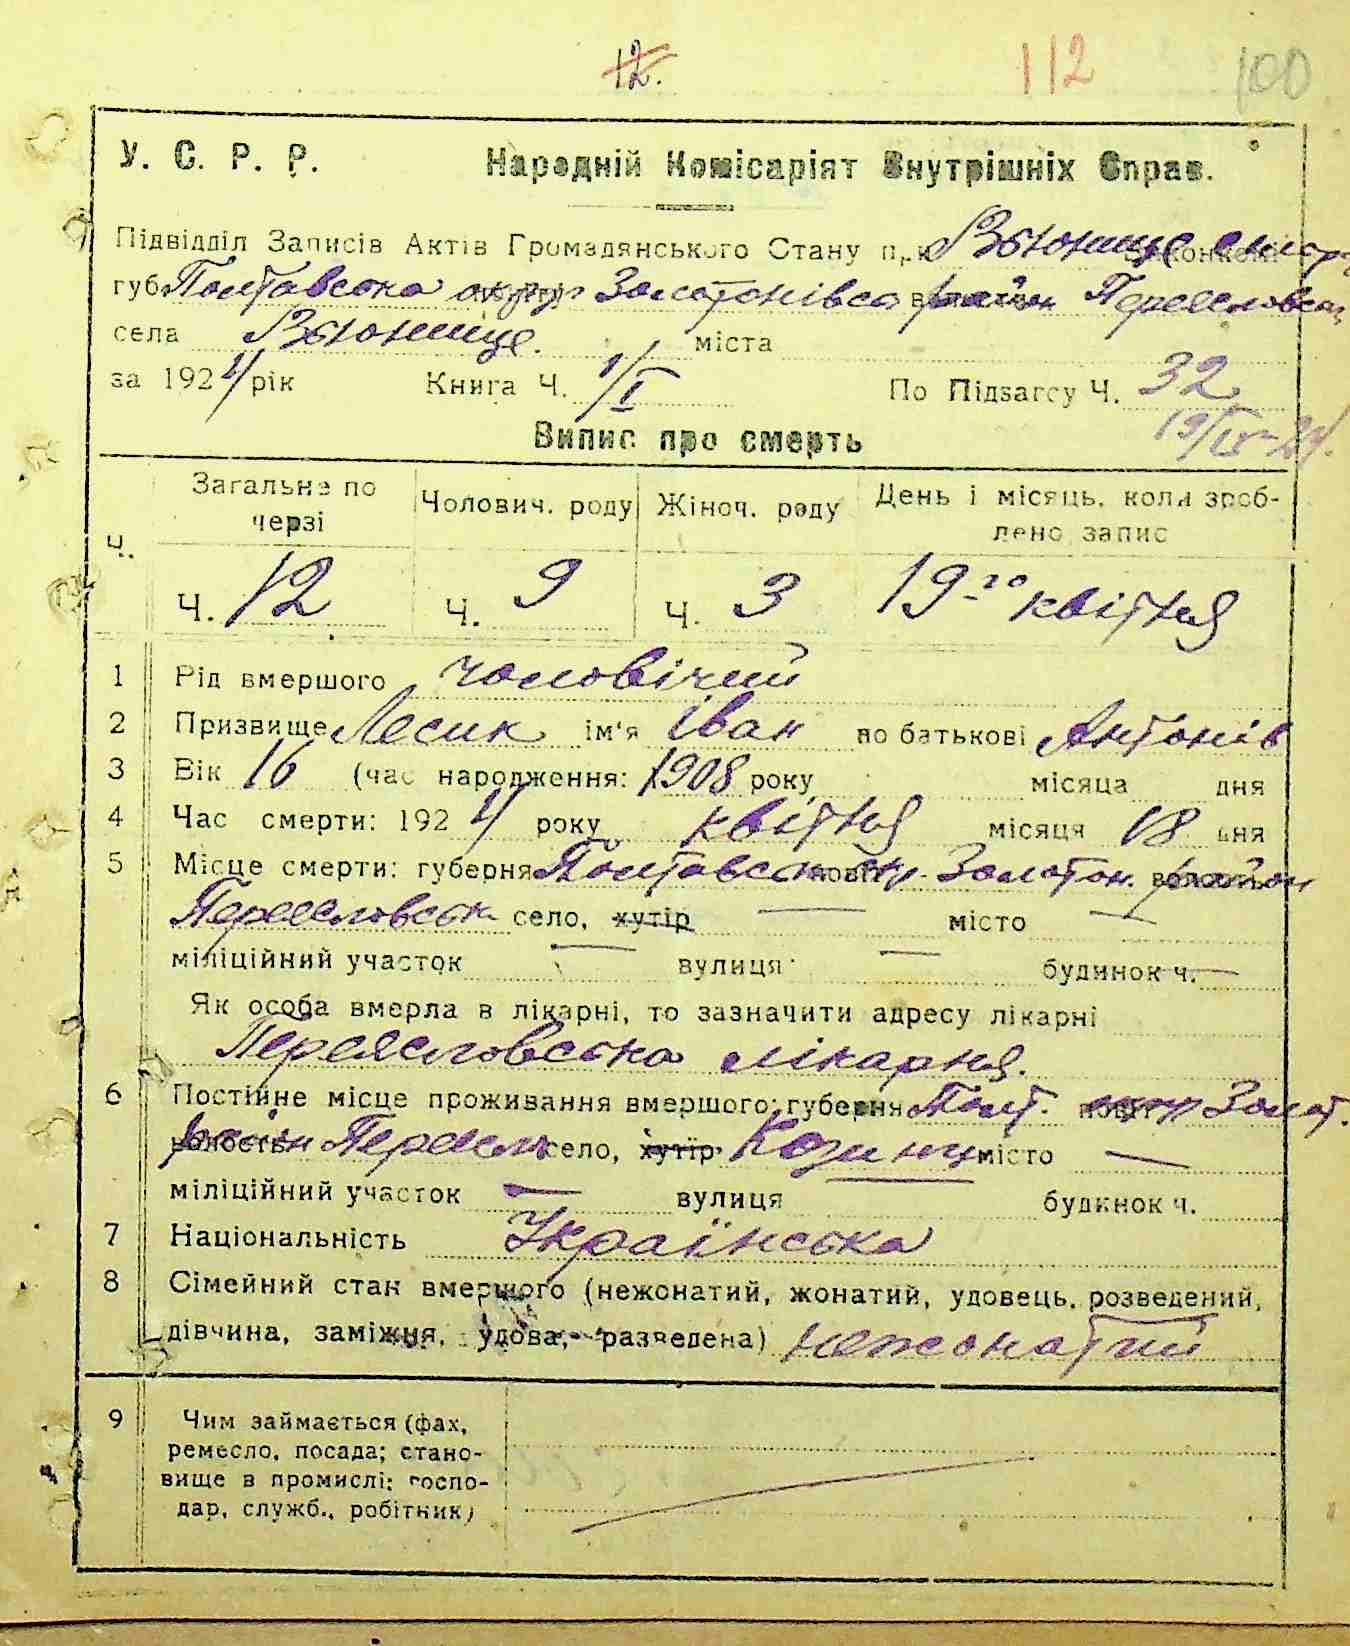 12.
112
100
У. С. Р. Р. Народній Комісаріят Внутрішніх Справ.
Підвідділ Записів Актів Громадянського Стану при Вьюнище
губ Полтавська округ Золотонівса район Переяловськ
села Вьюнище. міста
за 1924 рік Книга Ч. 1/I По Підзагсу Ч. 32
19/IV-24.
Випис про смерть
Ч. Загальне по черзі Чолович. роду Жіноч. роду День і місяць, коли зроблено запис
Ч. 12 Ч. 9 Ч. 3 19-го квітня
1 Рід вмершого чоловічий
2 Призвище Лесик ім'я Іван по батькові Антонів
3 Вік 16 (час народження: 1908 року місяца дня
4 Час смерти: 1924 року квітня місяця 18 дня
5 Місце смерти: губерня Полтавськ окр. Золотон. район
Переяловськ село, хутір — місто —
міліційний участок — вулиця — будинок ч. —
Як особа вмерла в лікарні, то зазначити адресу лікарні
Переясловська лікарня.
6 Постійне місце проживання вмершого: губерня Полт. окр Золот.
район Переясл село, хутір Козинці місто —
міліційний участок — вулиця будинок ч.
7 Національність Українська
8 Сімейний стан вмершого (нежонатий, жонатий, удовець, розведений,
дівчина, заміжня, удова, разведена) нежонатий
9 Чим займається (фах,
ремесло, посада; стано-
вище в промислі: госпо-
дар, служб., робітник)